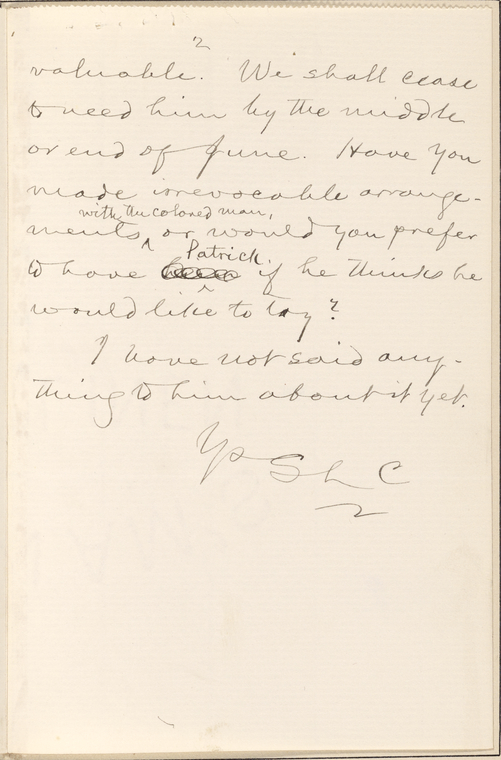 2
valuable. We shall cease
to need him by the middle
or end of June. Have you
made irrevocable arrange-
with the colored man,
ments, or would you prefer
Patrick.
to have if he thinks he
would like to try?
I have not said any-
thing to him about it yet.
Ys
SLC